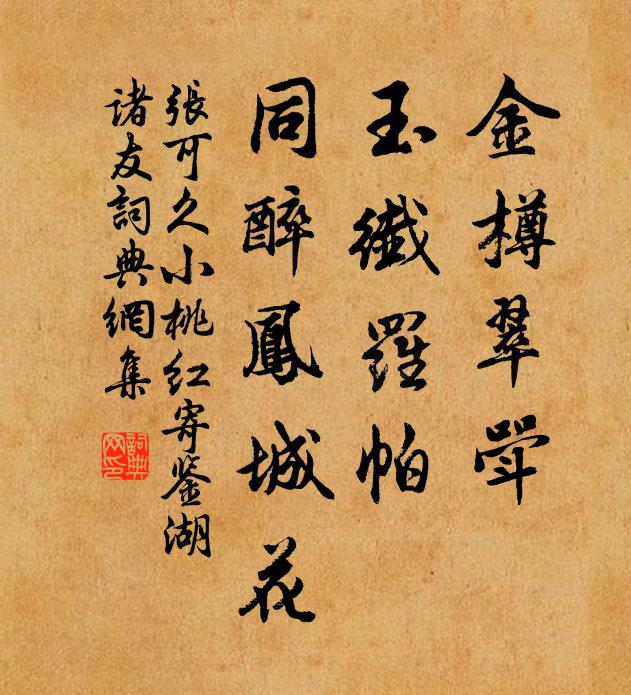 金樽翠斝
玉纖羅帕
同醉鳳城花
張可久小桃紅寄鑒湖
諸友詞典網集
詞典網印